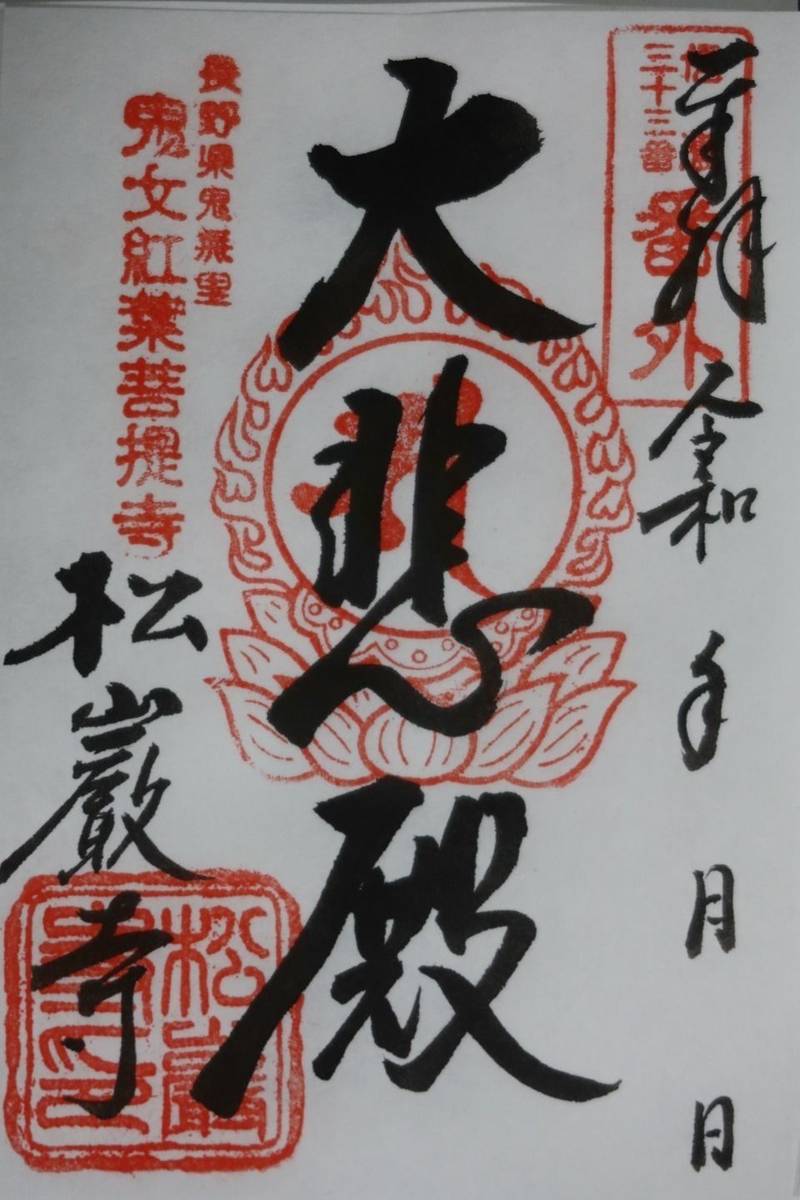 奉拝
令和 年 月 日
三十三番
番外
大悲殿
長野県鬼無里
鬼女紅葉菩提寺
松巖寺
松巖
寺印